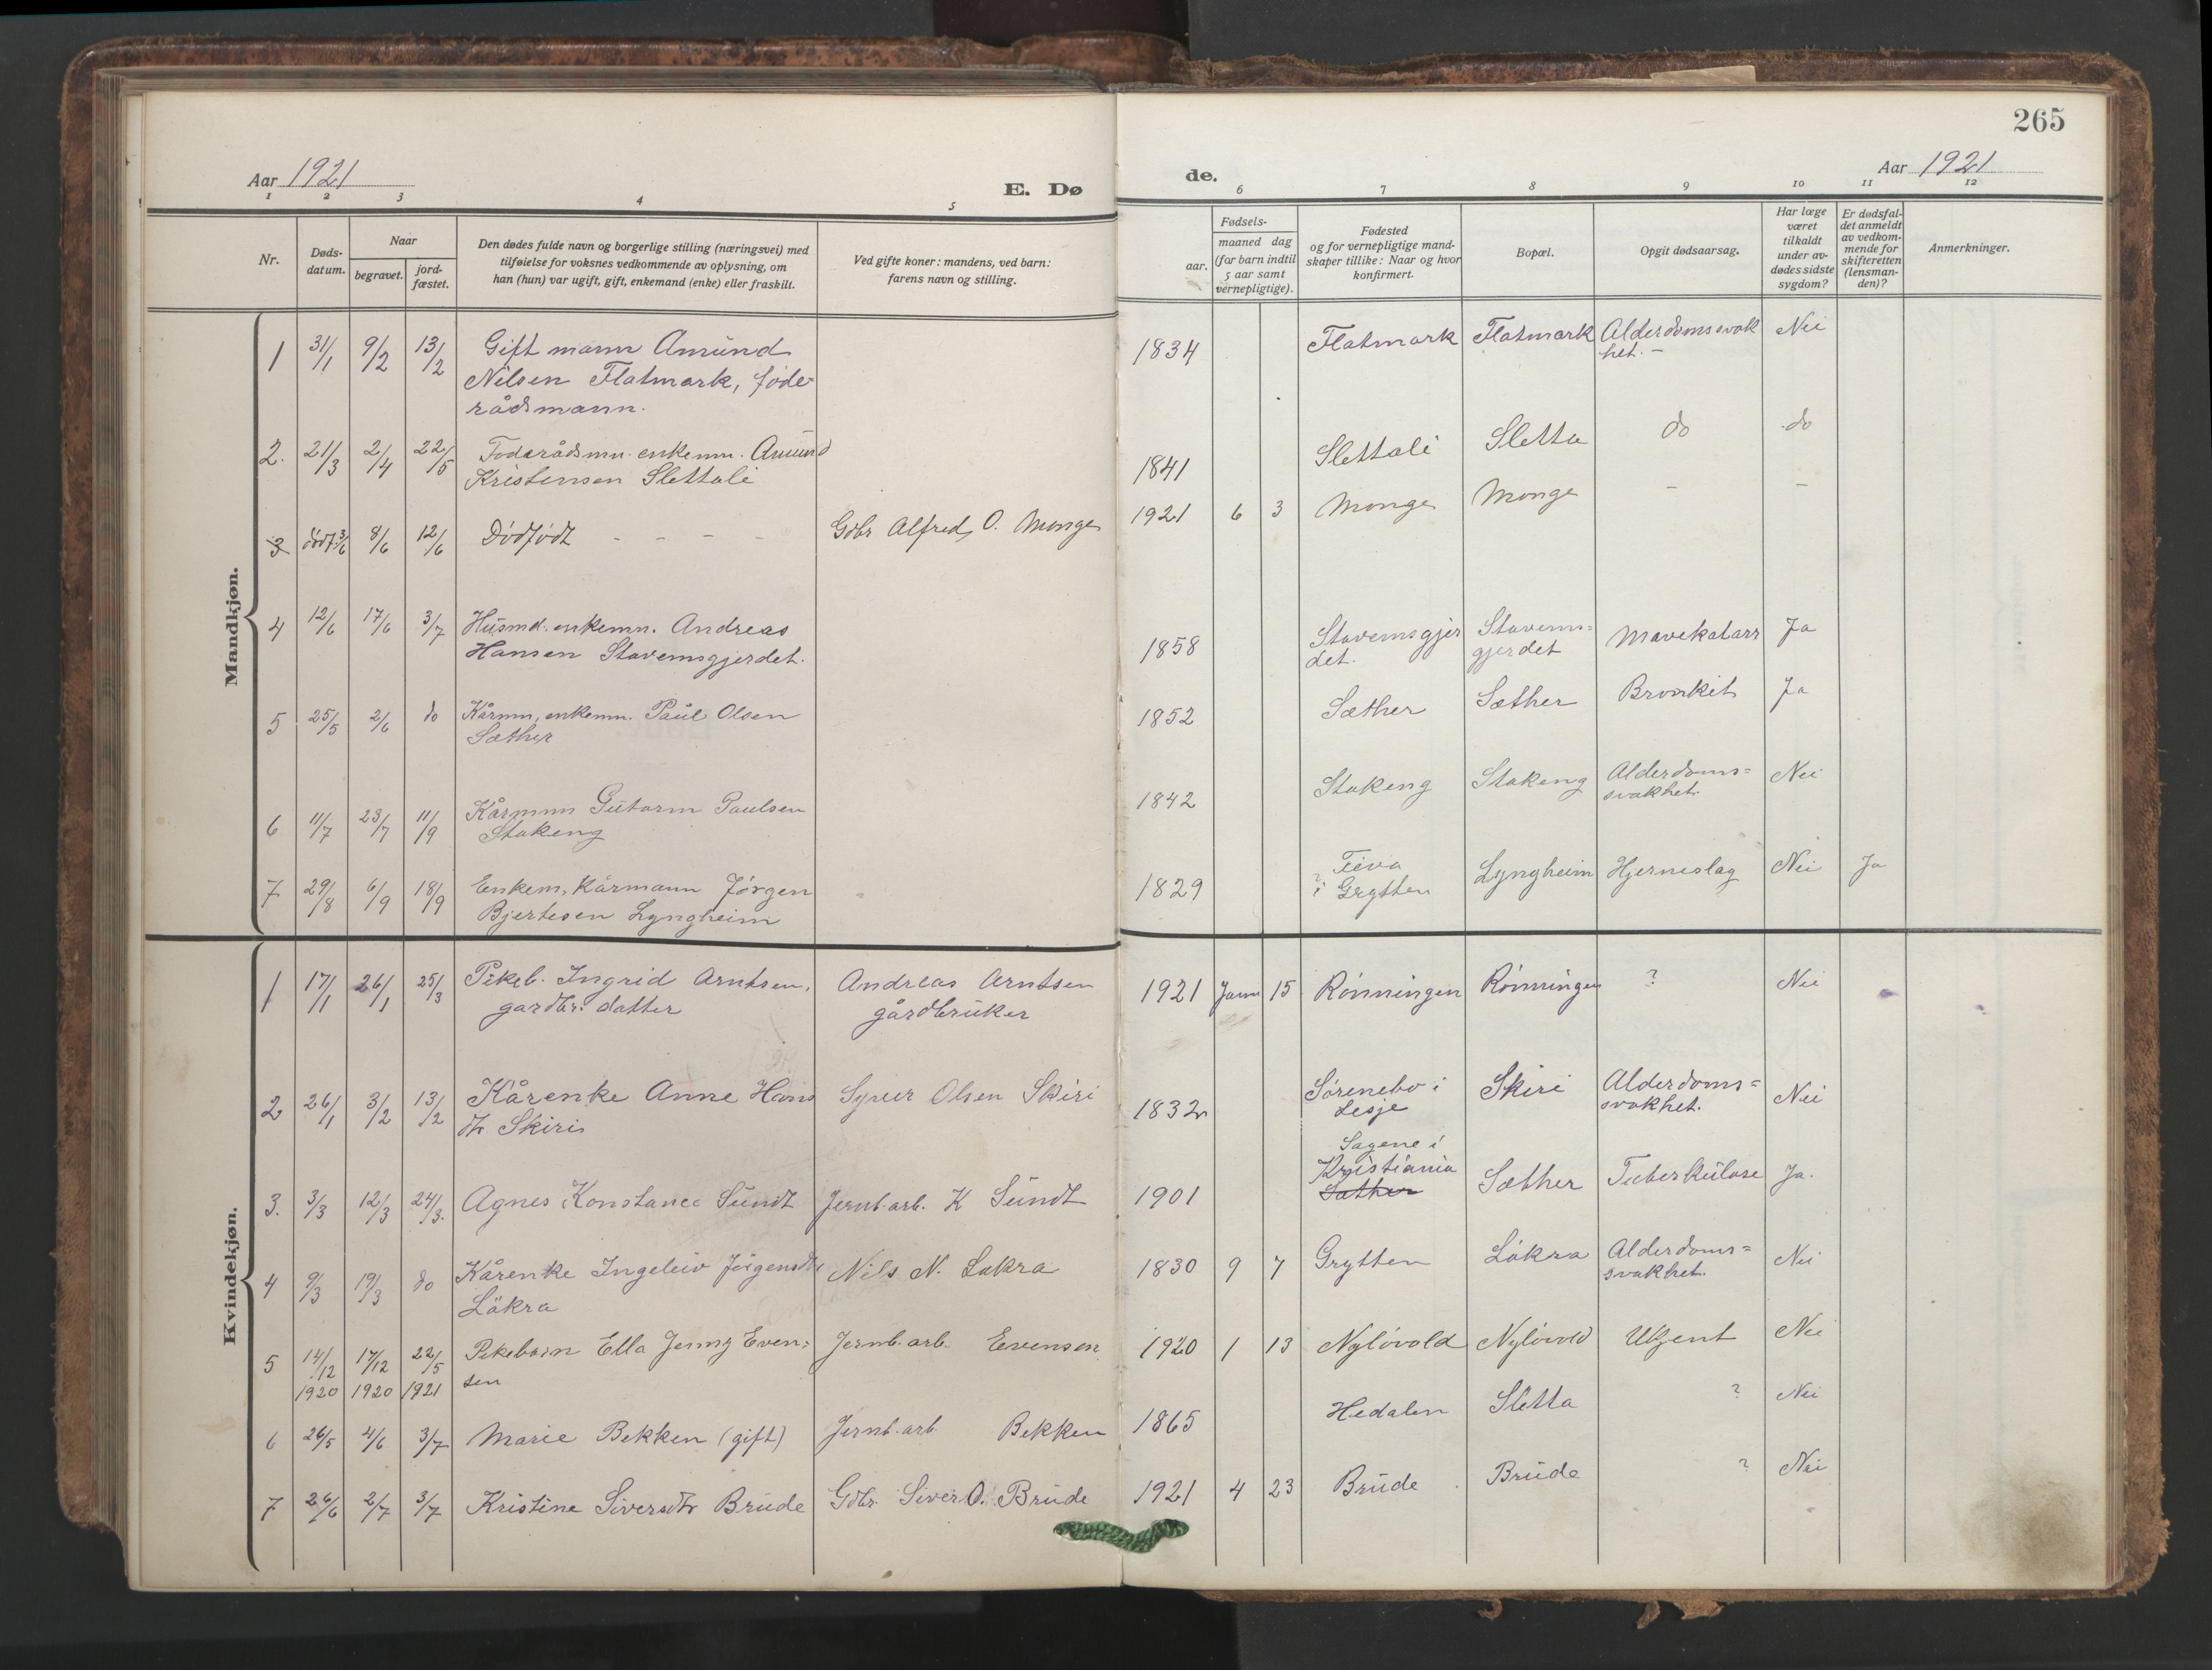 265
Aar 1921
E. Dø
de.
Aar 1921
1 2 3 4 5 6 7 8 9 10 11 12
Nr.
Døds-
datum.
Naar
begravet.
jord-
fæstet.
Den dødes fulde navn og borgerlige stilling (næringsvei) med
tilføielse for voksnes vedkommende av oplysning, om
han (hun) var ugift, gift, enkemand (enke) eller fraskilt.
Ved gifte koner: mandens, ved barn:
farens navn og stilling.
Fødsels-
aar.
maaned dag
(for barn indtil
5 aar samt
vernepligtige).
Fødested
og for vernepligtige mand-
skaper tillike: Naar og hvor
konfirmert.
Bopæl.
Opgit dødsaarsag.
Har læge
været
tilkaldt
under av-
dødes sidste
sygdom?
Er dødsfal-
det anmeldt
av vedkom-
mende for
skifteretten
(lensman-
den)?
Anmerkninger.
Mandkjøn.
1 31/1 9/2 13/2 Gift mann Amund 1834 Flatmark Flatmark Alderdomssvak Nei
Nilsen Flatmark, føde- het. –
rådsmann.
2. 21/3 2/4 22/5 Foderådsmn. enkemn. Amund 1841 Slettali Sletta do do
Kristensen Slettali
3 født 3/6 8/6 12/6 Dödfödt - - - - Gdbr Alfred O. Monge 1921 6 3 Monge Monge – –
4 12/6 17/6 3/7 Husmd. enkemn. Andreas 1858 Stavemsgjer Stavems= Mavekatarr Ja
Hansen Stavemsgjerdet. det. gjerdet
5 25/5 2/6 do Kårmn, enkemn. Paul Olsen 1852 Sæther Sæther Bronkit Ja
Sæther
6 11/7 23/7 11/9 Kårmnn Gutorm Paulsen 1842 Stokeng Stokeng Alderdoms= Nei
Stokeng svakhet.
7 29/8 6/9 18/9 Enkem, Kårmann Jörgen 1829 ? Fiva Lyngheim Hjerneslag Nei Ja
Bjertesen Lyngheim i Grytten
Kvindekjøn.
1 17/1 26/1 25/3 Pikeb. Ingrid Arntsen, Andreas Arntsen 1921 Janu 15 Rönningen Rönningen ? Nei
gardbr. datter gårdbruker
2 26/1 3/2 13/2 Kårenke Anne Hans Syver Olsen Skiri 1832 Sörenebo i Skiri Alderdoms= Nei
dtr Skiri Lesje svakhet.
Sagene i
Kristiania
3. 3/3 12/3 24/3. Agnes Konstance Sundt Jernb.arb. K Sundt 1901 Sæther Sæther Tuberkulose Ja.
4 9/3 19/3 do Kårenke Ingeleiv Jörgensdtr Nils N. Lökra 1830 9 7 Grytten Lökra Alderdoms= Nei
Lökra svakhet.
5 14/12 17/12 22/5 Pikebarn Ella Jenny Even= Jernb.arb. Evensen 1920 1 13 Nylövold Nylövold Ukjent Nei
1920 1920 1921 sen
6 26/5 4/6 3/7 Marie Bekken (gift) Jernb.arb. Bekken 1865 Hedalen Sletta ? Nei
7 26/6 2/7 3/7 Kristine Siversdtr Brude Gdbr. Siver O. Brude 1921 4 23 Brude Brude ? Nei